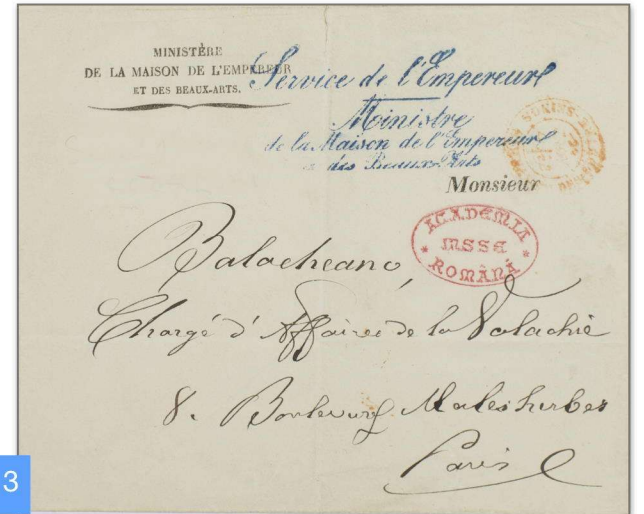 MINISTÈRE
DE LA MAISON DE L'EMPEREUR
ET DES BEAUX-ARTS.
Service de l'Empereur
Ministre
de la Maison de l'Empereur
des Beaux-Arts
Monsieur
ACADEMIA
MSSE
ROMÂNĂ
Balacheano,
Chargé d'Affaires de la Valachie
8. Boulevard Malesherbes
Paris
3